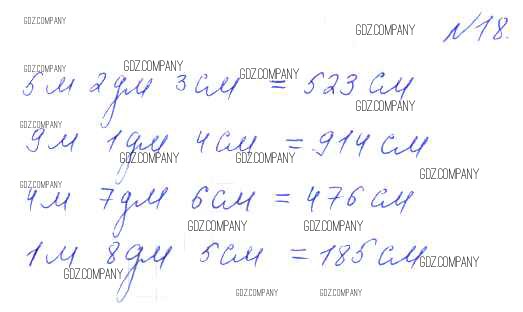 GDZ.COMPANY
GDZ.COMPANY №18.
GDZ.COMPANY GDZ.COMPANY GDZ.COMPANY
5 м 2 дм 3 см = 523 см
GDZ.COMPANY
GDZ.COMPANY
9 м 1 дм 4 см = 914 см
GDZ.COMPANY GDZ.COMPANY GDZ.COMPANY
GDZ.COMPANY
4 м 7 дм 6 см = 476 см
GDZ.COMPANY GDZ.COMPANY
1 м 8 дм 5 см = 185 см
GDZ.COMPANY GDZ.COMPANY
GDZ.COMPANY GDZ.COMPANY